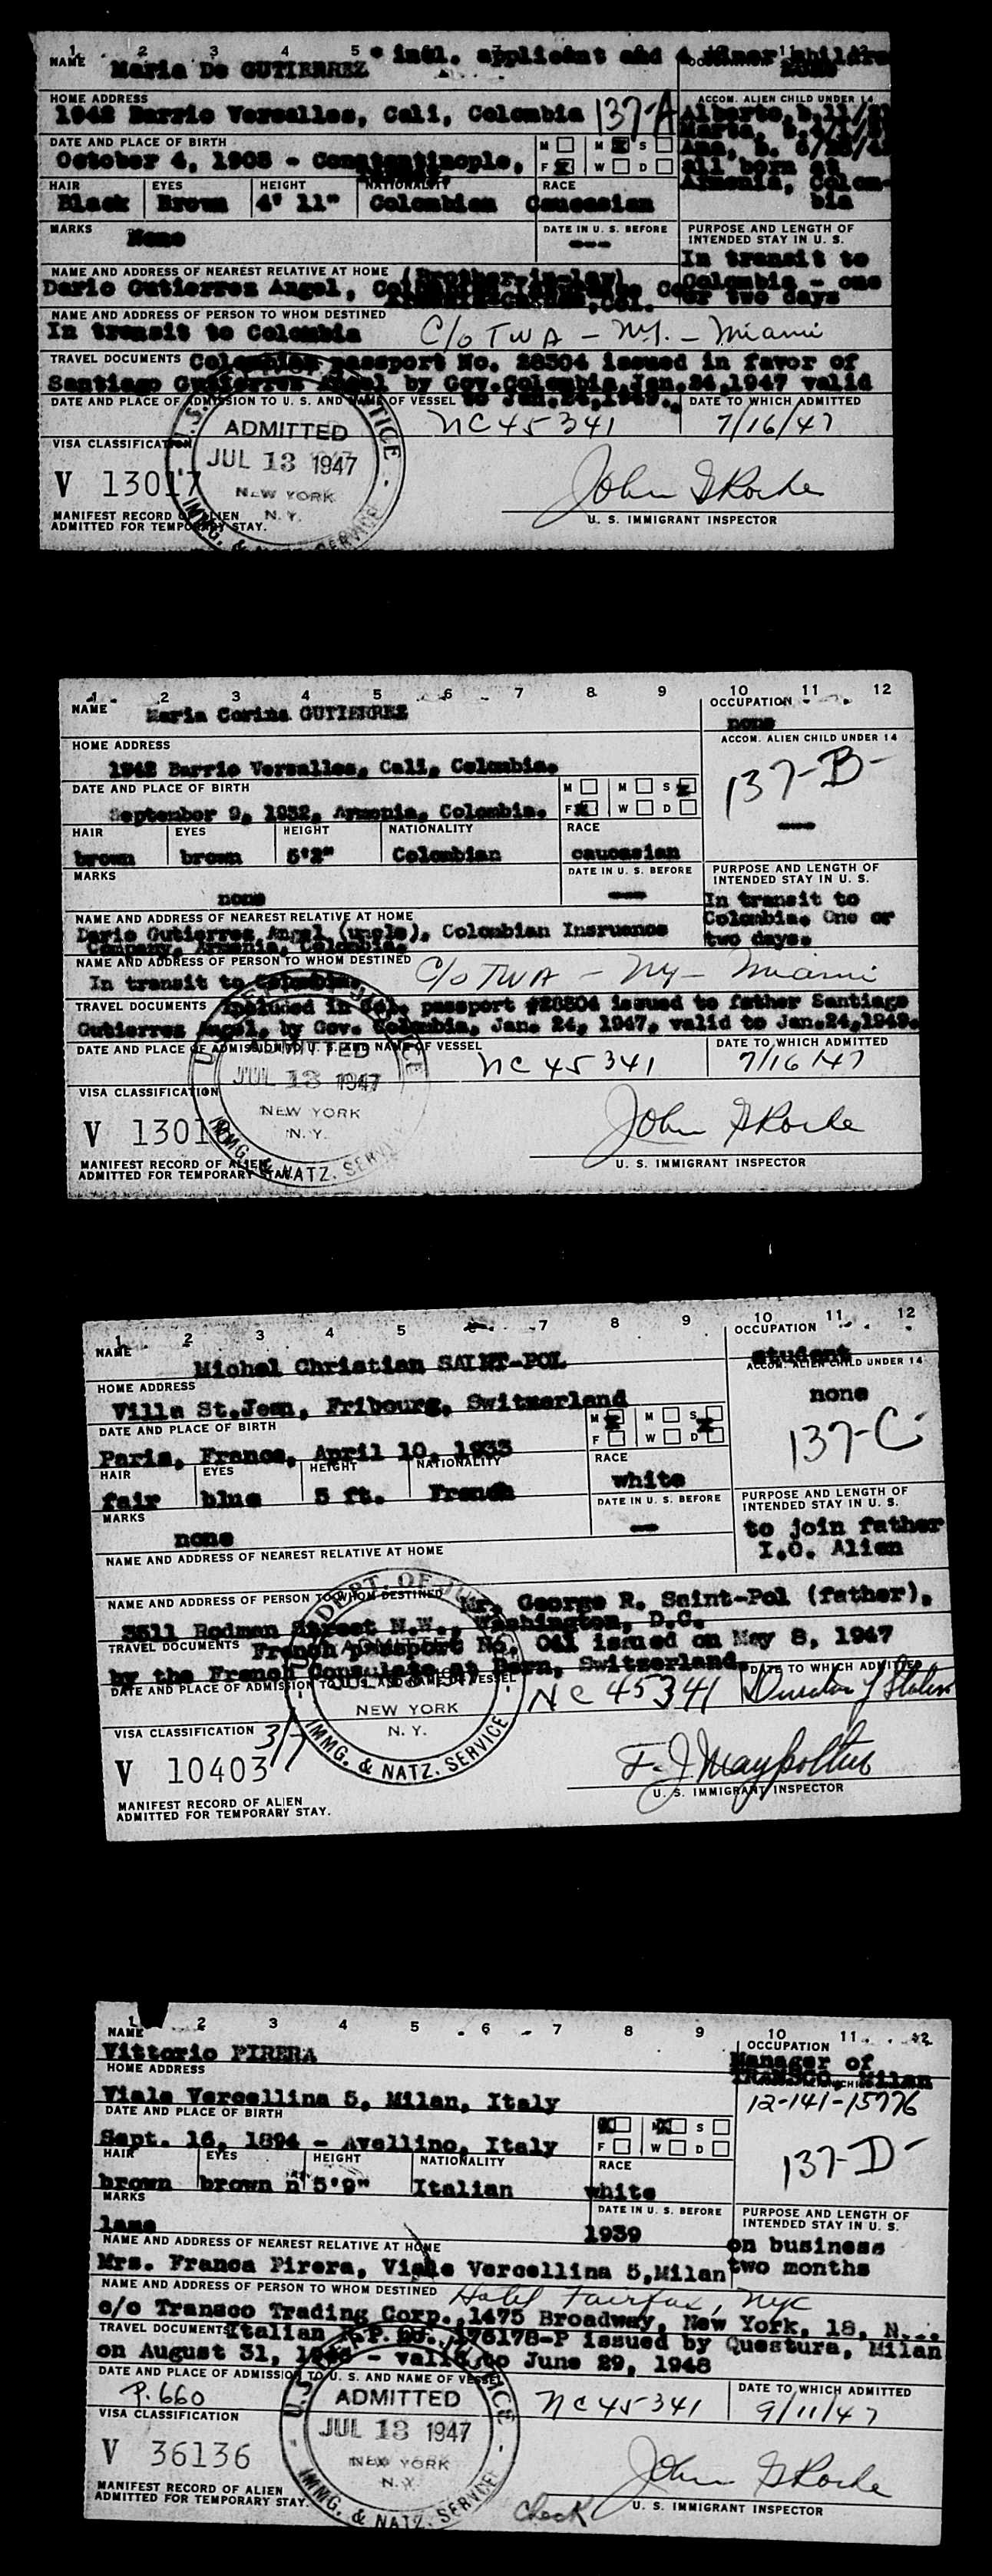 1 2 3 4 5 * incl. applicant and 4 minor
NAME Maria De GUTIERREZ
HOME ADDRESS ACCOM. ALIEN CHILD UNDER 14
1942 Barrio Versalles, Cali, Colombia 137-A
Alberto,
Marta,
DATE AND PLACE OF BIRTH M M S
October 4, 1905 - Constantinople, F W D
Ana,
all born at
HAIR EYES HEIGHT NATIONALITY RACE
Black Brown 4' 11" Colombian Caucasian
Armenia, Colom-
bia
MARKS DATE IN U. S. BEFORE PURPOSE AND LENGTH OF
INTENDED STAY IN U. S.
None ---
In transit to
Colombia - one
or two days
NAME AND ADDRESS OF NEAREST RELATIVE AT HOME (Brother-in-law)
Dario Gutierrez Angel,
NAME AND ADDRESS OF PERSON TO WHOM DESTINED
In transit to Colombia C/o TWA - NY. - Miami
TRAVEL DOCUMENTS Colombian passport No. 28504 issued in favor of
Santiago Gutierrez Angel by Gov.Colombia,Jan.24,1947 valid
to Jan.24,1949.
DATE AND PLACE OF ADMISSION TO U. S. AND NAME OF VESSEL DATE TO WHICH ADMITTED
NC45341 7/16/47
ADMITTED
JUL 13 1947
NEW YORK
N. Y.
IMMG. & NATZ. SERVICE
VISA CLASSIFICATION
V 13017
John G Rorke
MANIFEST RECORD OF ALIEN
ADMITTED FOR TEMPORARY STAY.
U. S. IMMIGRANT INSPECTOR
1 2 3 4 5 6 7 8 9 10 11 12
NAME Maria Corina GUTIERREZ OCCUPATION
none
HOME ADDRESS ACCOM. ALIEN CHILD UNDER 14
1942 Barrio Versalles, Cali, Colombia.
137-B-
DATE AND PLACE OF BIRTH M M S
September 9, 1932, Armenia, Colombia. F W D
HAIR EYES HEIGHT NATIONALITY RACE
brown brown 5'2" Colombian caucasian ---
MARKS DATE IN U. S. BEFORE PURPOSE AND LENGTH OF
INTENDED STAY IN U. S.
none ---
In transit to
Colombia. One or
two days.
NAME AND ADDRESS OF NEAREST RELATIVE AT HOME
Dario Gutierrez Angel (uncle), Colombian Insruence
Company, Armenia, Colombia.
NAME AND ADDRESS OF PERSON TO WHOM DESTINED
In transit to Colombia. C/o TWA - NY - Miami
TRAVEL DOCUMENTS Included in Col. passport #28504 issued to father Santiago
Gutierrez Angel, by Gov. Colombia, Jan. 24, 1947, valid to Jan.24,1949.
DATE AND PLACE OF ADMISSION TO U. S. AND NAME OF VESSEL DATE TO WHICH ADMITTED
NC45341 7/16/47
ADMITTED
JUL 13 1947
NEW YORK
N. Y.
IMMG. & NATZ. SERVICE
VISA CLASSIFICATION
V 1301
John G Rorke
MANIFEST RECORD OF ALIEN
ADMITTED FOR TEMPORARY STAY.
U. S. IMMIGRANT INSPECTOR
1 2 3 4 5 7 8 9 10 11 12
NAME Michel Christian SAINT-POL OCCUPATION
student
HOME ADDRESS ACCOM. ALIEN CHILD UNDER 14
Villa St.Jean, Fribourg, Switzerland none
137-C-
DATE AND PLACE OF BIRTH M M S
Paris, France, April 10, 1933 F W D
HAIR EYES HEIGHT NATIONALITY RACE
fair blue 5 ft. French white
MARKS DATE IN U. S. BEFORE PURPOSE AND LENGTH OF
INTENDED STAY IN U. S.
none ---
to join father
I.O. Alien
NAME AND ADDRESS OF NEAREST RELATIVE AT HOME
NAME AND ADDRESS OF PERSON TO WHOM DESTINED Mr. George R. Saint-Pol (father),
3511 Rodman Street N.W., Washington, D.C.
TRAVEL DOCUMENTS French passport No. 041 issued on May 8, 1947
by the French Consulate at Bern, Switzerland.
DATE AND PLACE OF ADMISSION TO U. S. AND NAME OF VESSEL DATE TO WHICH ADMITTED
NC45341 Duration of Status
DEPT. OF
NEW YORK
N. Y.
IMMG. & NATZ. SERVICE
VISA CLASSIFICATION 3/7
V 10403
MANIFEST RECORD OF ALIEN
ADMITTED FOR TEMPORARY STAY.
U. S. IMMIGRANT INSPECTOR
1 2 3 4 5 6 7 8 9 10 11 12
NAME OCCUPATION
Vittorio PIRERA Manager of
TRANSCO, Milan
HOME ADDRESS
Viale Vercellina 5, Milan, Italy 12-141-15776
DATE AND PLACE OF BIRTH M M S
Sept. 16, 1894 - Avellino, Italy F W D
137-D-
HAIR EYES HEIGHT NATIONALITY RACE
brown brown 5'9" Italian white
MARKS DATE IN U. S. BEFORE PURPOSE AND LENGTH OF
INTENDED STAY IN U. S.
lame 1939 on business
two months
NAME AND ADDRESS OF NEAREST RELATIVE AT HOME
Mrs. Franca Pirera, Viale Vercellina 5,Milan
NAME AND ADDRESS OF PERSON TO WHOM DESTINED Hotel Fairfax, NYC
c/o Transco Trading Corp.,1475 Broadway, New York, 18, N.Y.
TRAVEL DOCUMENTS Italian P.P. No. 176178-P issued by Questura, Milan
on August 31, 1946 - valid to June 29, 1948
DATE AND PLACE OF ADMISSION TO U. S. AND NAME OF VESSEL DATE TO WHICH ADMITTED
P.660 NC45341 9/11/47
ADMITTED
JUL 13 1947
NEW YORK
N. Y.
IMMG. & NATZ. SERVICE
VISA CLASSIFICATION
V 36136
John G Rorke
MANIFEST RECORD OF ALIEN
ADMITTED FOR TEMPORARY STAY.
check
U. S. IMMIGRANT INSPECTOR